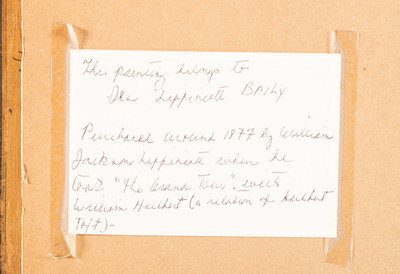 This painting belongs to
Ida Lippincott BAILY
Purchased around 1877 by William
Jackson Lippincott when he
took "the Grand Tour" with
William Hulbert (a relation of Hulbert
Taft)-